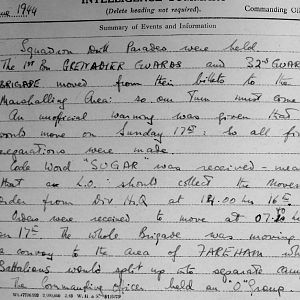 INTELLIGENCE
(Delete heading not required).
Commanding Of
une 1944
Summary of Events and Information
Squadron Drill Parades were held.
The 1st Bn GRENADIER GUARDS and 32nd GUAR
BRIGADE moved from their billets to the
Marshalling Area: so our turn must come
An unofficial warning was given that
would move on Sunday 17th: so all fi
reparations were made.
Code Word "SUGAR" was received - mea
that an L.O. should collect the move
rder from Div H.Q at 18.00 hrs 16th
Orders were received to move at 07.
on 17th The whole Brigade was moving
convoy to the area of FAREHAM wh
Battalions would split up into separate cam
The Commanding Officer held an "O" Group.